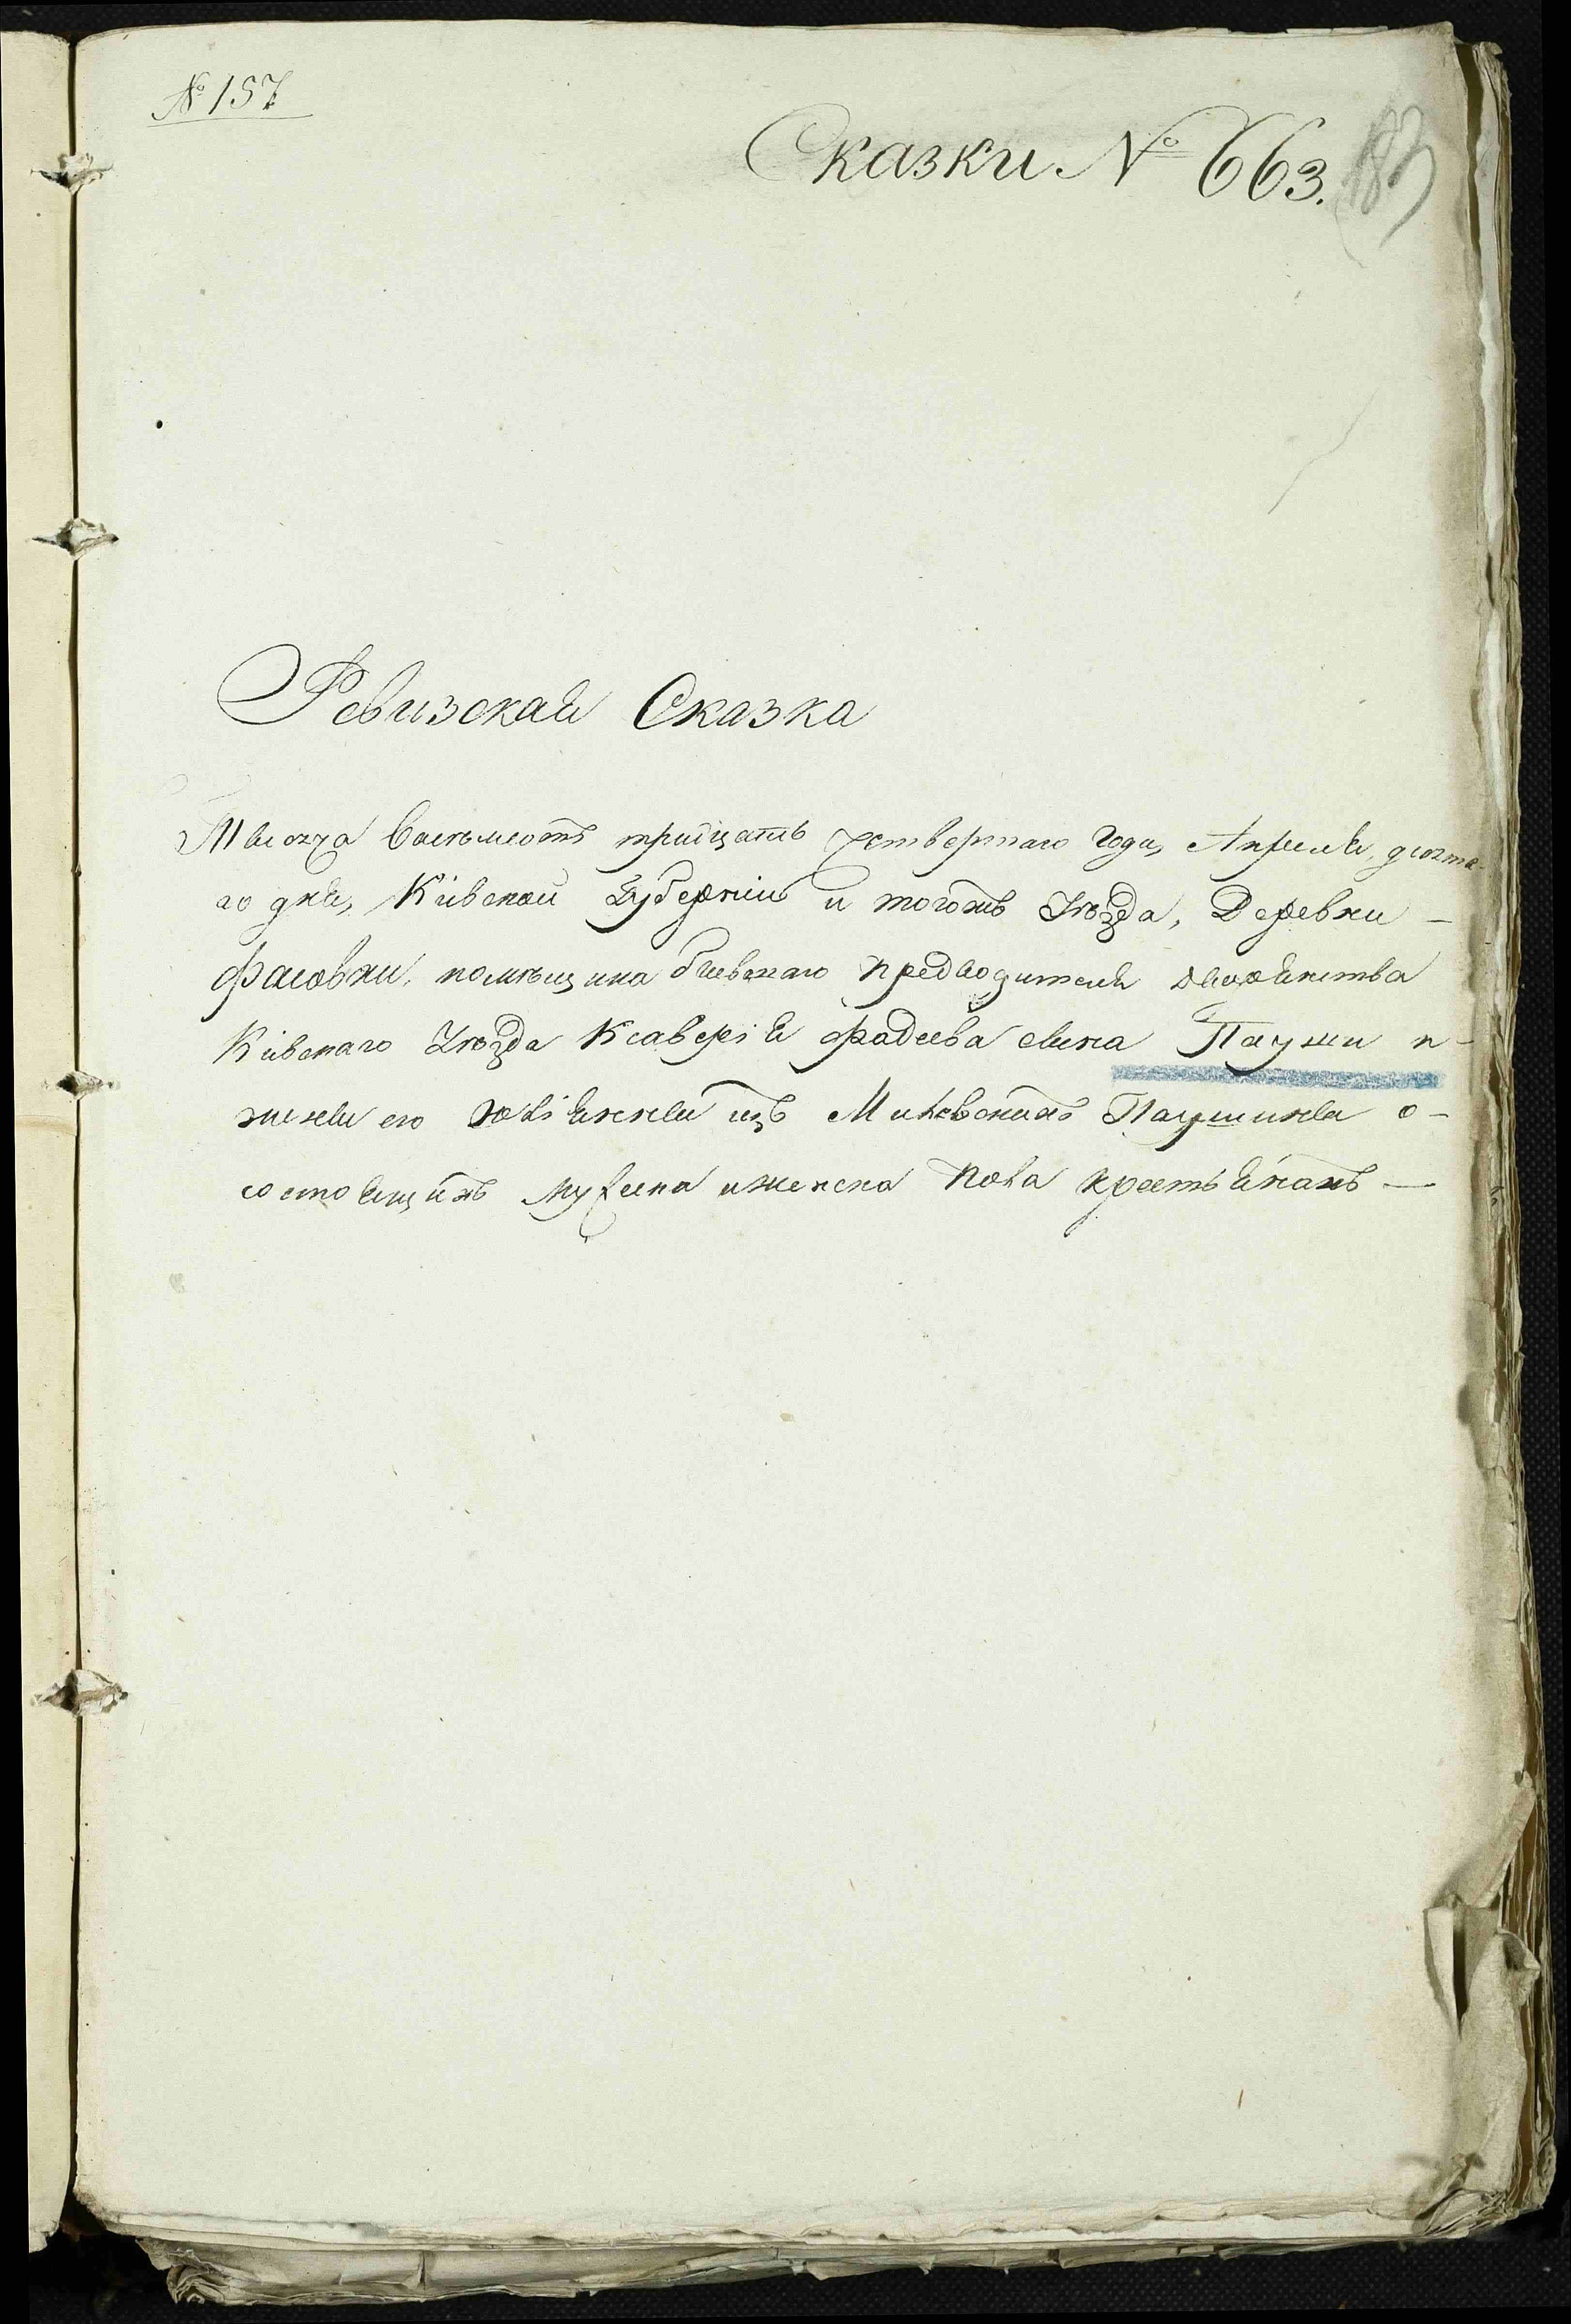 № 157
Сказки № 663.
183
Ревизская Сказка
Тысяча восемьсотъ трийцать четвертаго года, Апреля, десята-
го дня, Кіевской Губерніи и тогожъ Уѣзда, Деревни –
Фасовки, помѣщика бывшаго предводителя дворянства
Кіевскаго Уѣзда Ксаверія Фадеева сына Пауши и-
жены его Юліянны изъ Паушины о-
состоящихъ мужеска и женска пола крестьянахъ —